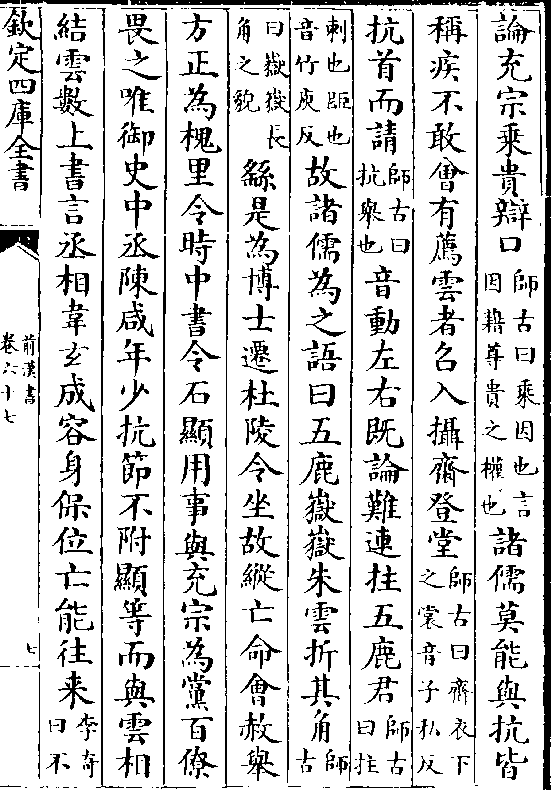 論充宗乗貴辯口師古曰乗因也言因藉尊貴之權也諸儒莫能與抗皆
稱疾不敢會有薦雲者召入攝齋登堂師古曰齋衣下之裳音子私反
抗首而請師古曰抗舉也音動左右既論難連拄五鹿君師古曰拄
刺也距也音竹庾反故諸儒為之語曰五鹿嶽嶽朱雲折其角師古
曰嶽嶽長角之貌繇是為博士遷杜陵令坐故縱亡命會赦舉
方正為槐里令時中書令石顯用事與充宗為黨百僚
畏之唯御史中丞陳咸年少抗節不附顯等而與雲相
結雲數上書言丞相韋玄成容身保位亡能往来李奇曰不
欽定四庫全書
前漢書
卷六十七
七